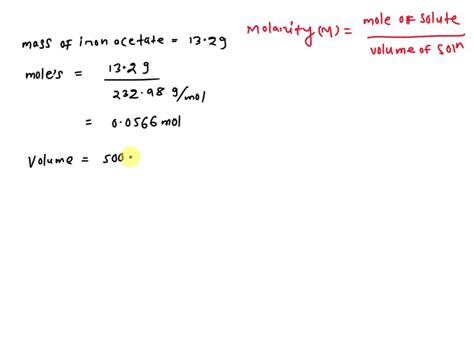 mass of iron acetate = 13.2g
mole's = 13.2g
232.98 g/mol
= 0.0566 mol
Volume = 500.
Molarity (M) = mole of solute
volume of soln